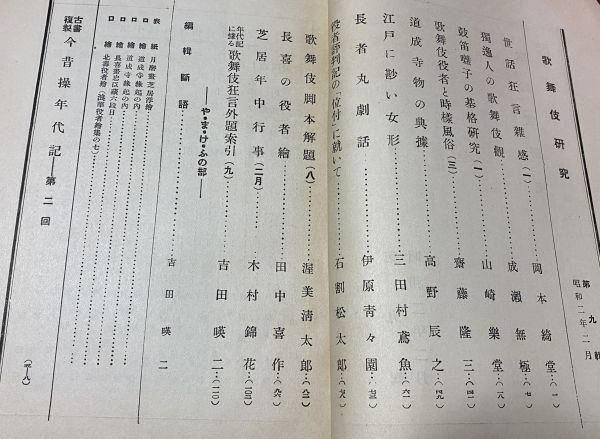 歌舞伎研究
第九輯
昭和二年二月
世話狂言雜感(一)………岡本綺堂…(一)
獨逸人の歌舞伎觀………成瀨無極…(七)
鼓笛囃子の基格研究(一)………山崎樂堂…(一八)
歌舞伎役者と時樣風俗(三)………齋藤隆三…(四四)
道成寺物の典據………高野辰之…(四九)
江戸に尠い女形………三田村鳶魚…(六一)
長者丸劇話………伊原靑々園…(七三)
役者評判記の「位付」に就いて………石割松太郎…(七九)
歌舞伎脚本解題(八)………渥美淸太郎…(八二)
長喜の役者繪………田中喜作…(九六)
芝居年中行事(二月)………木村錦花…(一〇四)
年代記に據る歌舞伎狂言外題索引(九)………吉田暎二…(一一〇)
――や・ま・け・ふの部――
編輯斷語………吉田暎二
表紙 月麿畫芝居浮繪
口繪 道成寺緣起の内
口繪 道成寺緣起の内
口繪 長喜畫忠臣藏六段目
口繪 北壽役者繪(浪華役者繪集の七)
古書複製 今昔操年代記 第二回